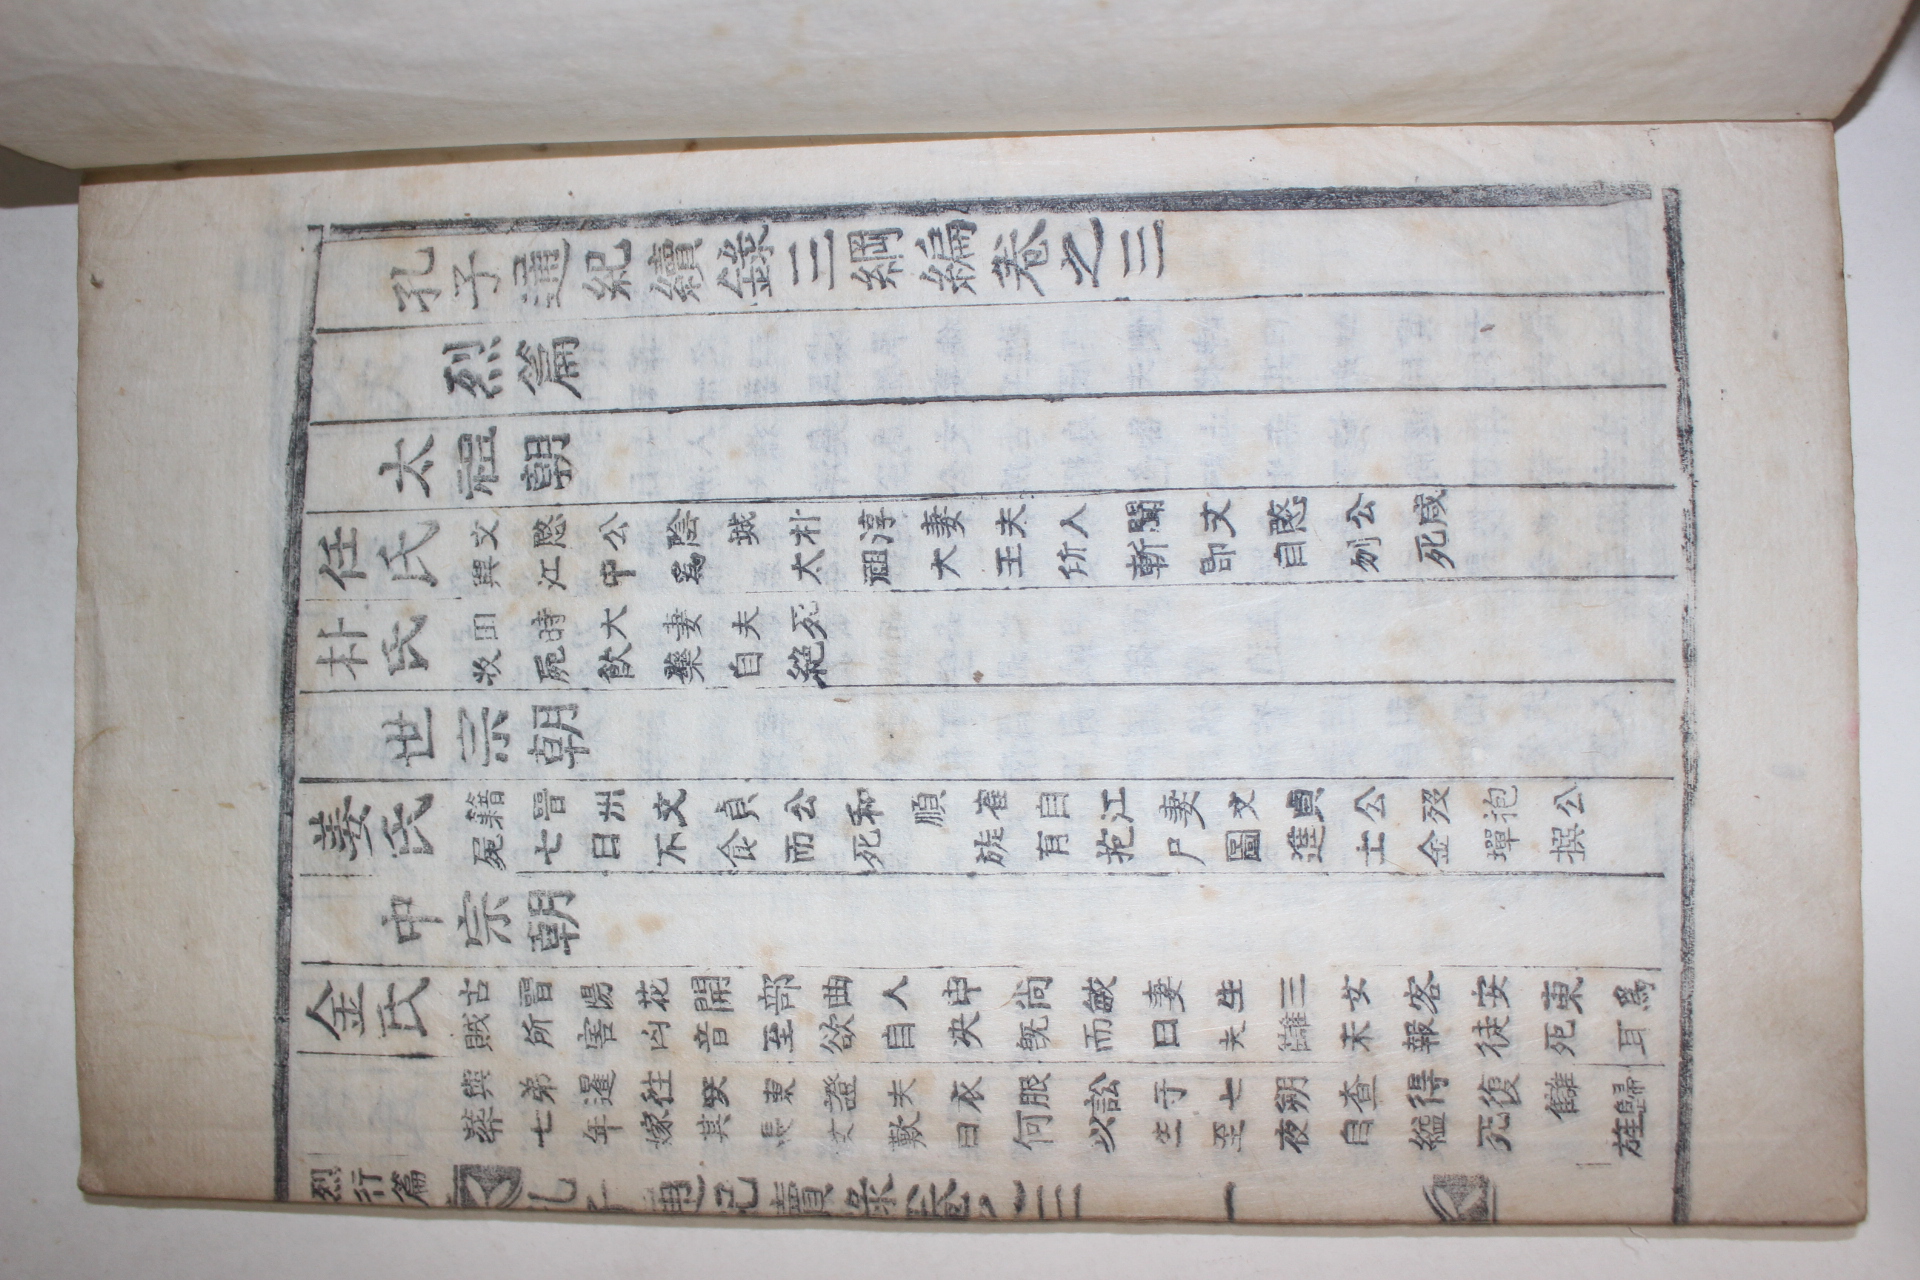 孔子通紀續錄三綱編卷之三
烈篇
太祖朝
任氏
文愍公陰城朴淳妻夫人聞文愍公咸
興江中爲太祖大王所斬即自刎死
朴氏
田時大妻夫死
收屍飮藥自絶
世宗朝
姜氏
籍晉州文貞公和順崔自江妻文貞公歿抱公
屍七日不食而死 旌有抱尸圖進士金墠撰
中宗朝
金氏
古晋陽花開部曲人申尚敏妻生三女客安東爲
賊所害凶音至欲自决旣而曰夫讎未報徒死耳
與弟暹徃哭東證夫衣服訟于七朔查得復讎歸
葬七年嫁其長女歎曰何以生至夜自縊死 旌
烈行篇
孔子通紀續錄卷之三
一